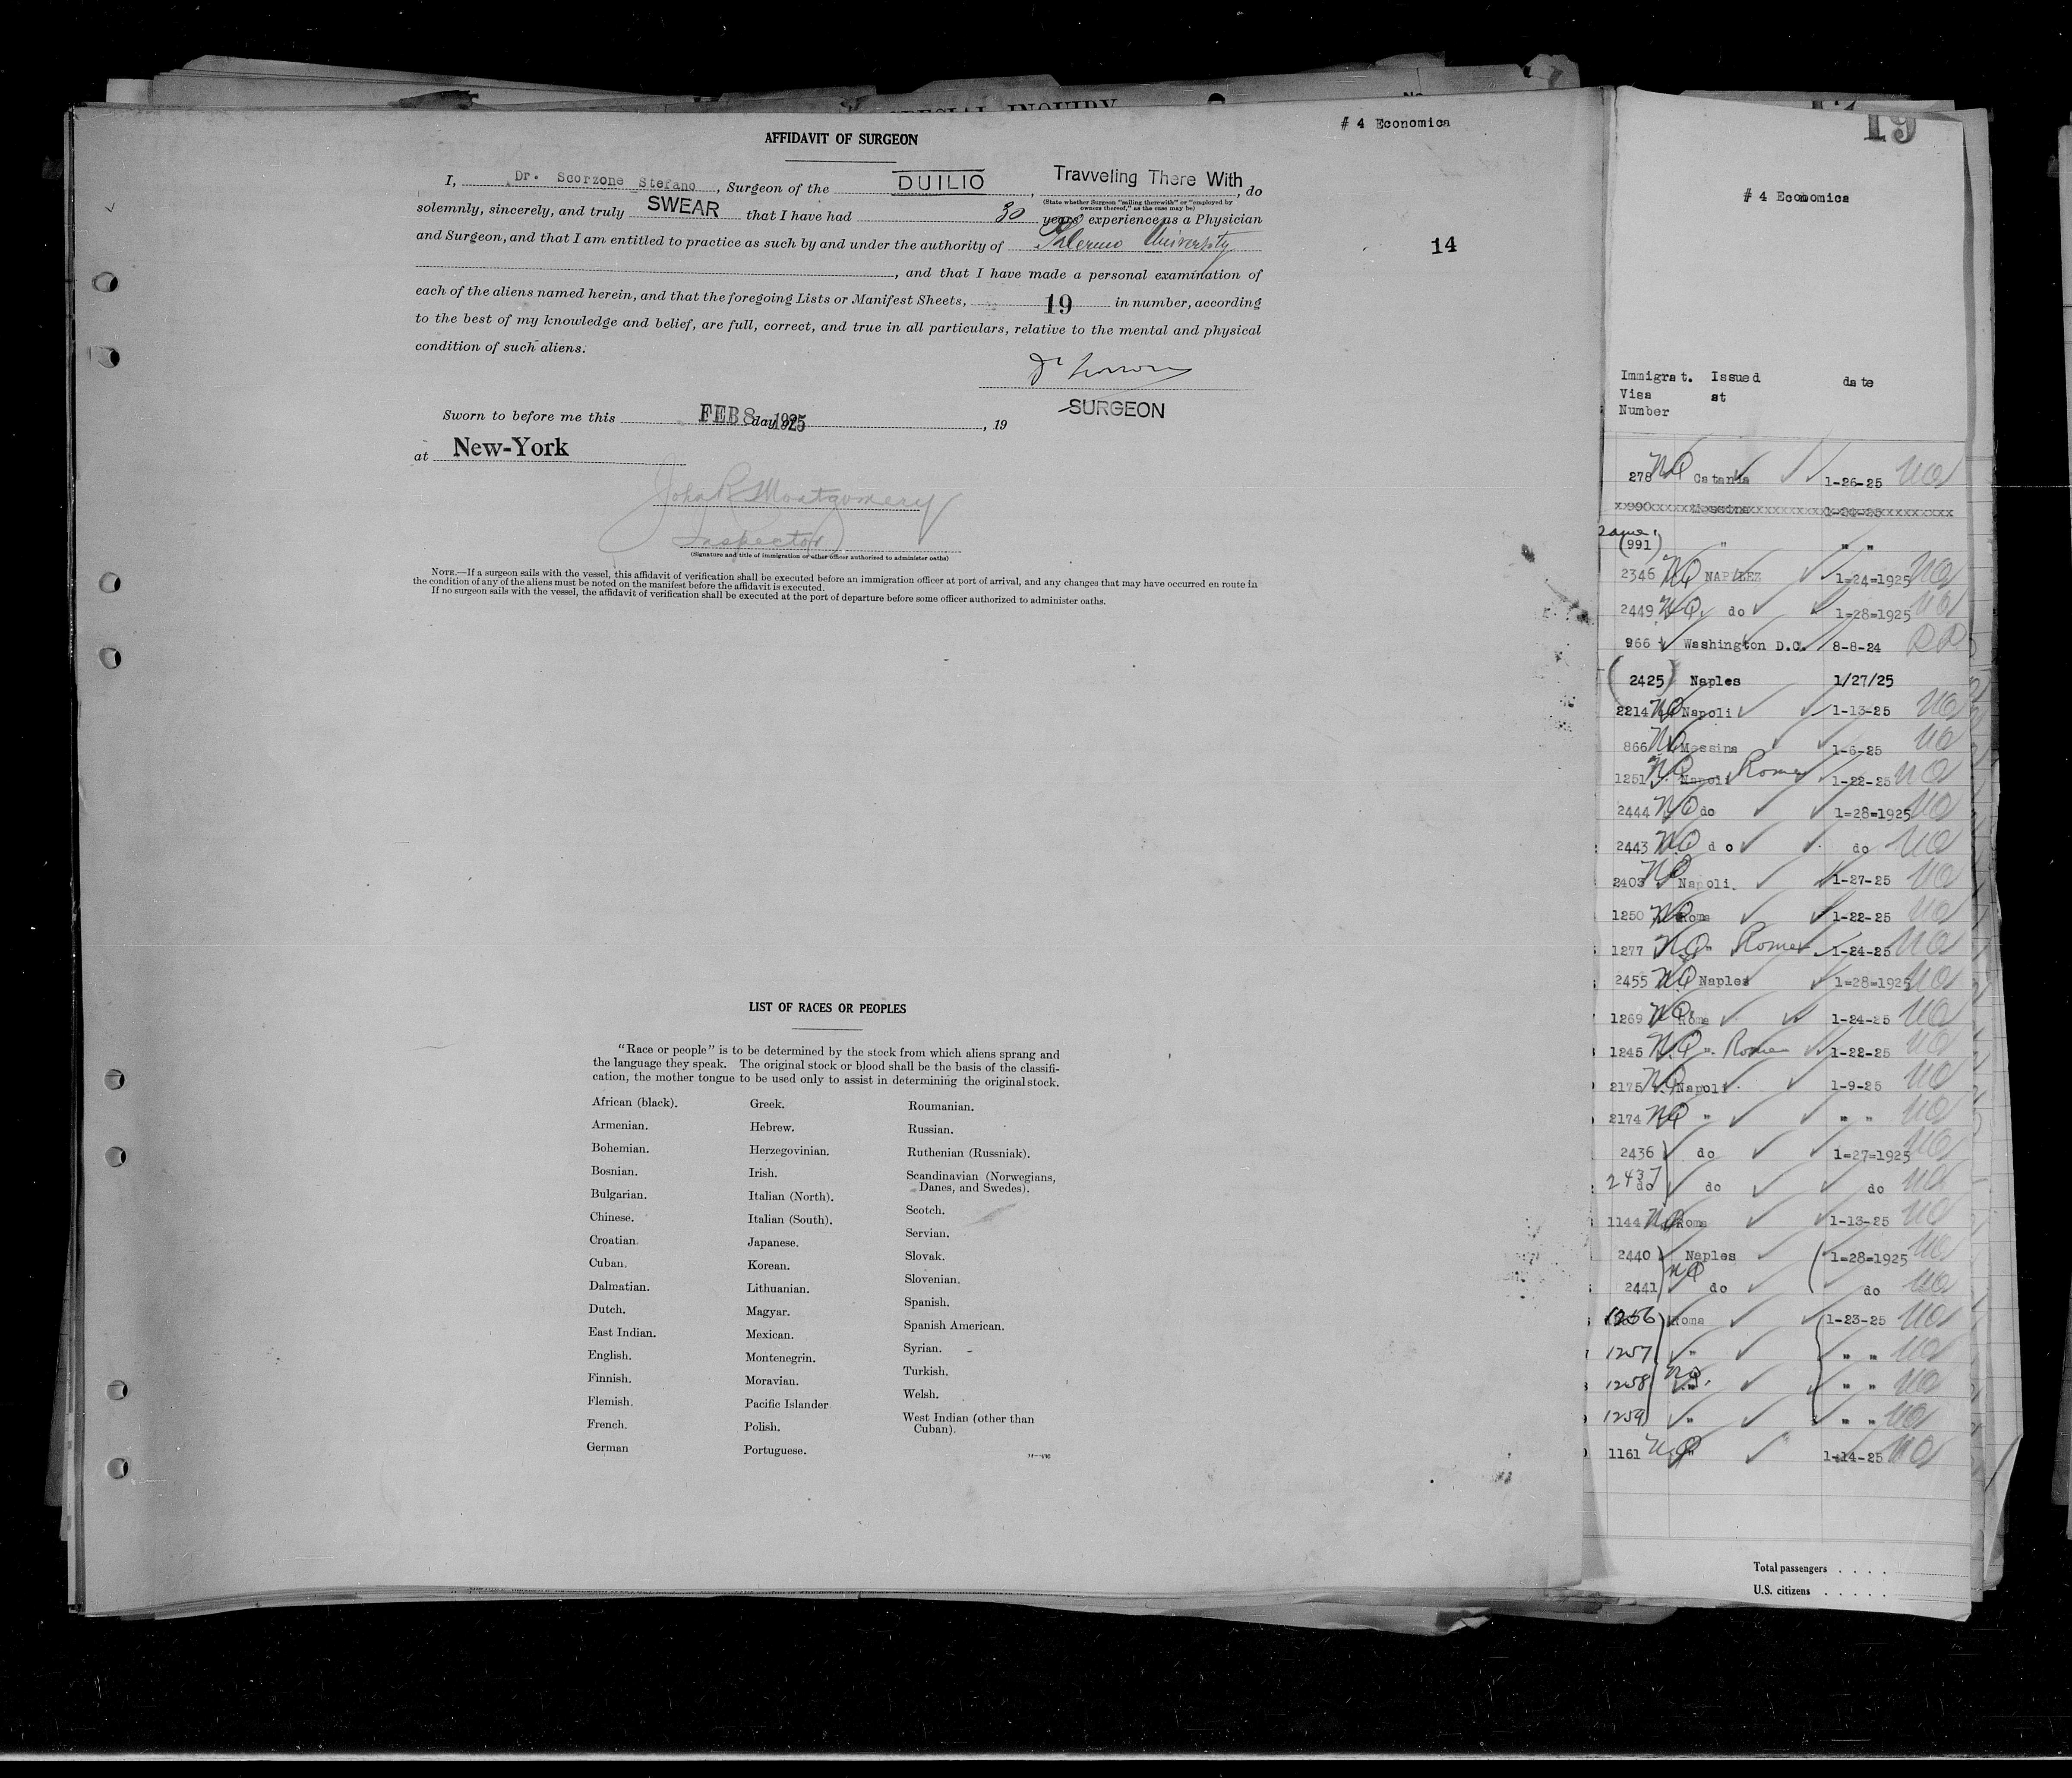 SPECIAL INQUIRY
# 4 Economica
AFFIDAVIT OF SURGEON
I, Dr. Scorzone Stefano, Surgeon of the DUILIO, Travveling There With, do
(State whether Surgeon "sailing therewith" or "employed by
owners thereof," as the case may be)
solemnly, sincerely, and truly SWEAR that I have had 30 years' experience as a Physician
and Surgeon, and that I am entitled to practice as such by and under the authority of Palermo University
14
, and that I have made a personal examination of
each of the aliens named herein, and that the foregoing Lists or Manifest Sheets, 19 in number, according
to the best of my knowledge and belief, are full, correct, and true in all particulars, relative to the mental and physical
condition of such aliens.
SURGEON
Sworn to before me this FEB 8 1925 day of , 19
at New-York
John R Montgomery
Inspector
(Signature and title of immigration or other officer authorized to administer oaths)
NOTE.—If a surgeon sails with the vessel, this affidavit of verification shall be executed before an immigration officer at port of arrival, and any changes that may have occurred en route in
the condition of any of the aliens must be noted on the manifest before the affidavit is executed.
If no surgeon sails with the vessel, the affidavit of verification shall be executed at the port of departure before some officer authorized to administer oaths.
LIST OF RACES OR PEOPLES
"Race or people" is to be determined by the stock from which aliens sprang and
the language they speak. The original stock or blood shall be the basis of the classifi-
cation, the mother tongue to be used only to assist in determining the original stock.
African (black).
Armenian.
Bohemian.
Bosnian.
Bulgarian.
Chinese.
Croatian.
Cuban.
Dalmatian.
Dutch.
East Indian.
English.
Finnish.
Flemish.
French.
German
Greek.
Hebrew.
Herzegovinian.
Irish.
Italian (North).
Italian (South).
Japanese.
Korean.
Lithuanian.
Magyar.
Mexican.
Montenegrin.
Moravian.
Pacific Islander.
Polish.
Portuguese.
Roumanian.
Russian.
Ruthenian (Russniak).
Scandinavian (Norwegians,
Danes, and Swedes).
Scotch.
Servian.
Slovak.
Slovenian.
Spanish.
Spanish American.
Syrian.
Turkish.
Welsh.
West Indian (other than
Cuban).
19
# 4 Economica
Immigrat. Issued date
Visa at
Number
278 NQ Catania 1-26-25
990 Messina 1-24-25
(991) " " "
2346 NQ NAPLEZ 1=24=1925
2449 NQ do 1=28=1925
966 Washington D.C. 8-8-24
(2425) Naples 1/27/25
2214 NQ Napoli 1-13-25
866 NQ Messina 1-6-25
1251 NQ Napoli Rome 1-22-25
2444 NQ do 1=28=1925
2443 NQ do do
2403 NQ Napoli. 1-27-25
1250 NQ Roma 1-22-25
1277 NQ " Rome 1-24-25
2455 NQ Naples 1=28=1925
1269 NQ Roma 1-24-25
1245 NQ " Rome 1-22-25
2175 NQ Napoli 1-9-25
2174 NQ " " "
2436 do 1=27=1925
2437 do do do
1144 NQ Roma 1-13-25
2440 Naples 1=28=1925
2441 NQ do do
1256 Roma 1-23-25
1257 " " "
1258 NQ. " " "
1259 " " "
1161 NQ " 1-14-25
Total passengers . . . .
U.S. citizens . . . . .